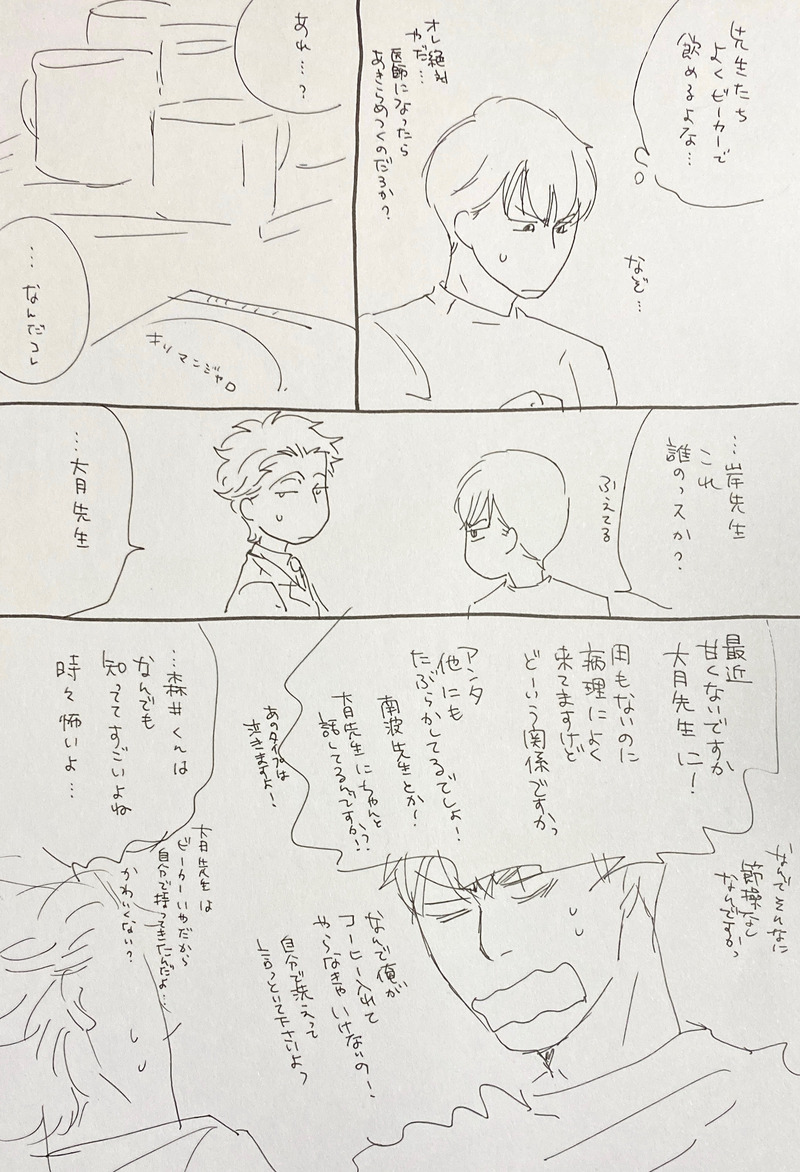 先生たち
よくビーカーで
飲めるよな…
なぞ…
オレ絶対
やだ…
医師になったら
あきらめつくのだろか?
あれ…?
…なんだコレ
キリマンジャロ
…岸先生
これ
誰のっスか?
ふえてる
…大月先生
最近
甘くないですか
大月先生に!
用もないのに
病理によく
来てますけど
どーいう関係ですかっ
アンタ
他にも
たぶらかしてるでしょ!
南波先生とか!
大月先生にちゃんと
話してるんですか!?
あのタイプは
泣きますよ!
なんでそんなに
節操なし
なんですかっ
なんで俺が
コーヒー入れて
やらなきゃいけないの!
自分で洗えって
言っといて下さいよっ
…森井くんは
なんでも
知っててすごいよね
時々怖いよ…
大月先生は
ビーカーいやだから
自分で持ってきたんだよ…
かわいくない?